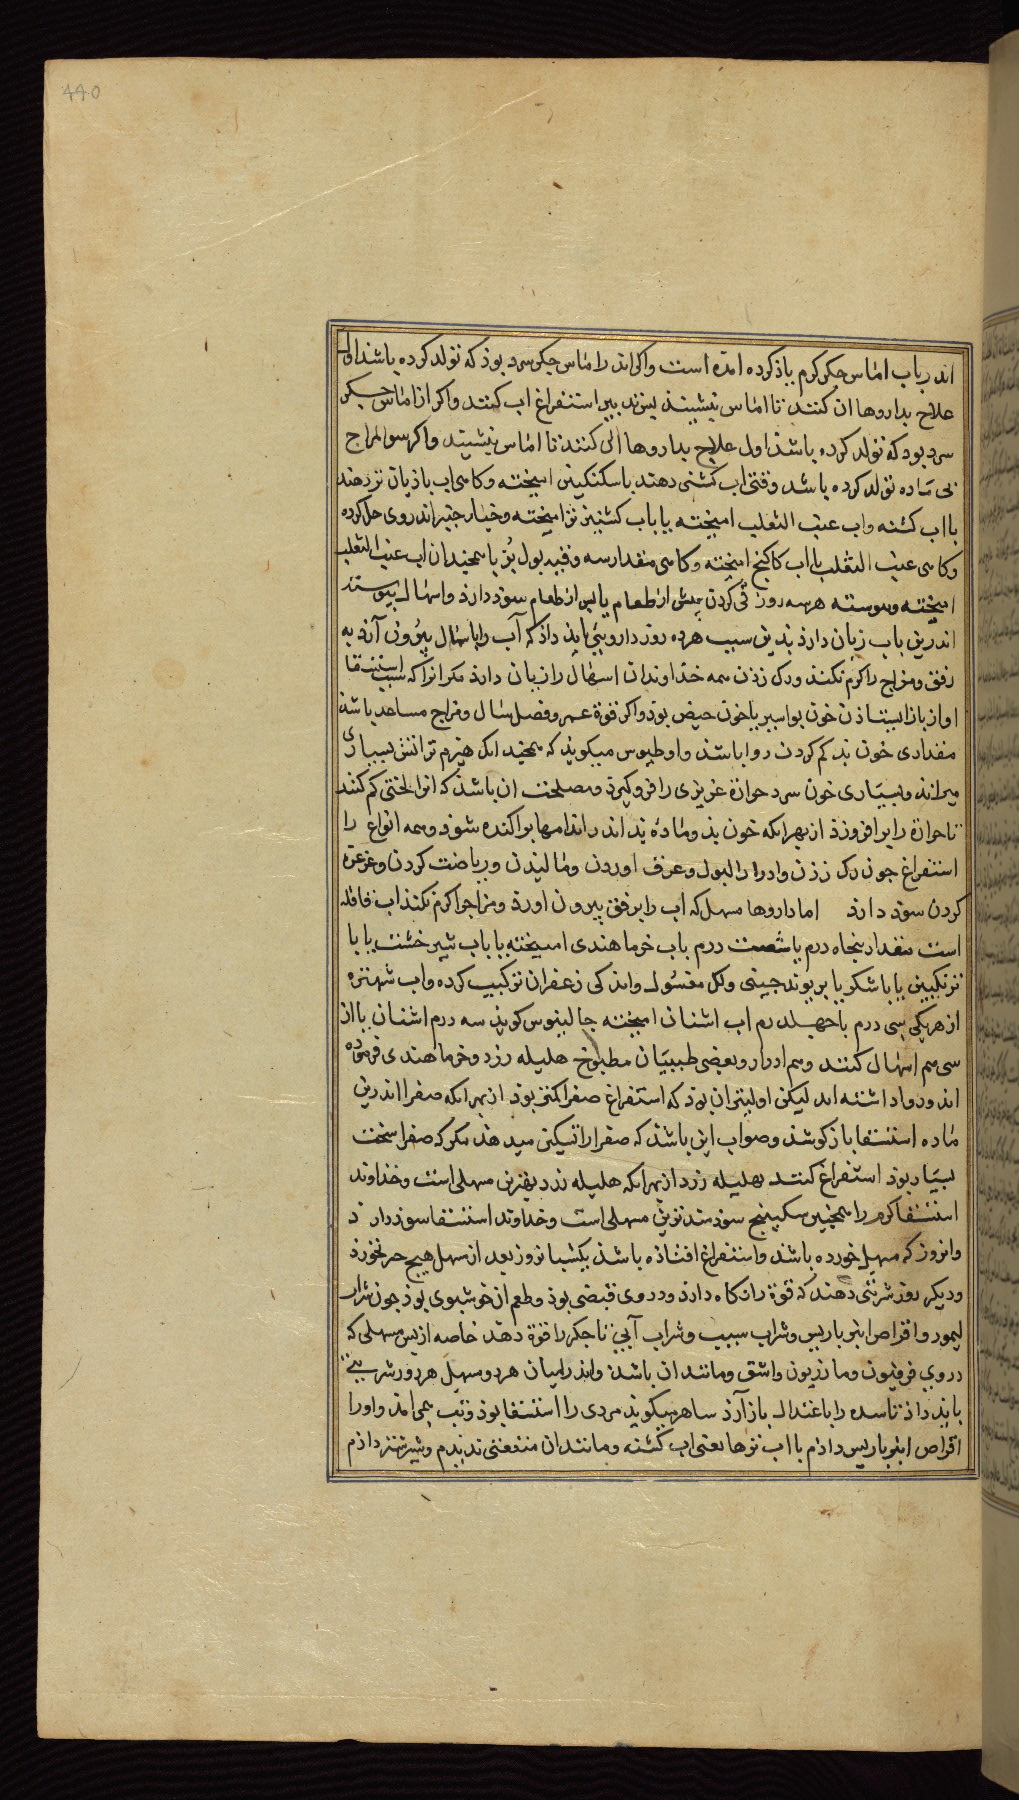 440
اندر باب اماس جکر کرم یاذ کرده امذه است واکر اندر اماس جکر سرد بوذ که تولد کرده باشذ اول
علاج بداروها ان کنند تا اماس بنشیند پس تدبیر استفراغ اب کنند واکر از اماس جکر
سرد بود که تولد کرده باشذ اول علاج بداروها الی کنند تا اماس بنشیند واکر سو المزاج
بی ماده تولد کرده باشد وقتی اب کشنی دهند با سکنکبین امیخته وکاهی اب باذیان تر دهند
با اب کشنه واب عنب الثعلب امیخته یا باب کشنیز تر امیخته وخیار جنبر اندر وی حل کرده
وکاهی عنب الثعلب با اب کاکنج امیخته وکاهی مقدار سه وقیه بول بز یا همجندان اب عنب الثعلب
امیخته وپیوسته هر سه روز قی کردن پیش از طعام یا پس از طعام سوذ دارذ واسهال پیوسته
اندرین باب زیان دارذ بدین سبب هر ده روز داروئی بایذ داذ که آب را باسهال بیرون آرذ به
رفق ومزاج را کرم نکند ورک زذن همه خذاوندان اسهال را زیان دارذ مکر انرا که سبب استسقا
او از باز ایستاذن خون بواسیر یا خون حیض بوذ واکر قوة عمر وفصل سال ومزاج مساعد باشذ
مقداری خون بد کم کردن روا باشد واوطیوس میکویذ که همجند انک هیزم تر اتش بسیاری
میراند وبسیاری خون سرد حرارة غریزی را فرو کیرد ومصلحت ان باشذ که ازو لختی کم کنند
تا حرارة را بر افروزذ از بهر انکه خون بذ وماده بذ اندر اندامها پراکنده شوذ وهمه انواع را
استفراغ جون رک زذن وادرار البول وعرق اوردن ومالیدن وریاضت کردن وغرغره
کردن سوذ دارذ اما داروها مسهل که اب را برفق بیرون اورذ ومزاج را کرم نکند اب قاقله
است مقدار پنجاه درم یا شصت درم باب خرما هندی امیخته یا باب شیر خشت یا با
ترنکبین یا با شکر یا بریوند جینی ولک مغسول واندکی زعفران ترکیب کرده واب شهتره
از هریکی سی درم با جهل درم اب اشنان امیخته جالینوس کویذ سه درم اشنان با از
سی هم اسهال کنند وهم ادرار وبعضی طبیبان مطبوخ هلیله زرد وخرما هندی فرموده
اند وروا داشته اند لیکن اولیتر ان بوذ که استفراغ صفرا کمتر بوذ از بهر انکه صفرا اندرین
ماده استسقا باز کوشذ وصواب این باشذ که صفرا را تسکین میدهند مکر که صفرا سخت
بسیار بوذ استفراغ کنند بهلیله زرد از بهر انکه هلیله زرد بهترین مسهلی است وخذاوند
استسقا کرم را همجنین سکبینج سوذمندترین مسهلی است وخذاوند استسقا سوذ دارد
وانروز که مسهل خورده باشذ واستفراغ افتاذه باشذ یکشبانروز بعد از مسهل هیج جیز نخورذ
ودیکر روز شربتی دهند که قوة را نکاه دارذ ودر وی قبضی بوذ وطعم ان خوشبوی بوذ جون شراب
لیمو واقراص انبر باریس وشراب سیب وشراب آبی تا جکر را قوة دهد خاصه از پس مسهلی که
در وی فرفیون ومازریون واشق ومانند ان باشذ واندر میان هر دو مسهل هر روز شربتی
بایذ داذ تا سده را باعتدال باز آرذ ساهر میکویذ مردی را استسقا بوذ وتب همی امذ واورا
اقراص انبر باریس داذم با اب ترها یعنی اب کشنه ومانند ان منفعتی ندیدم وشیر شتر داذم